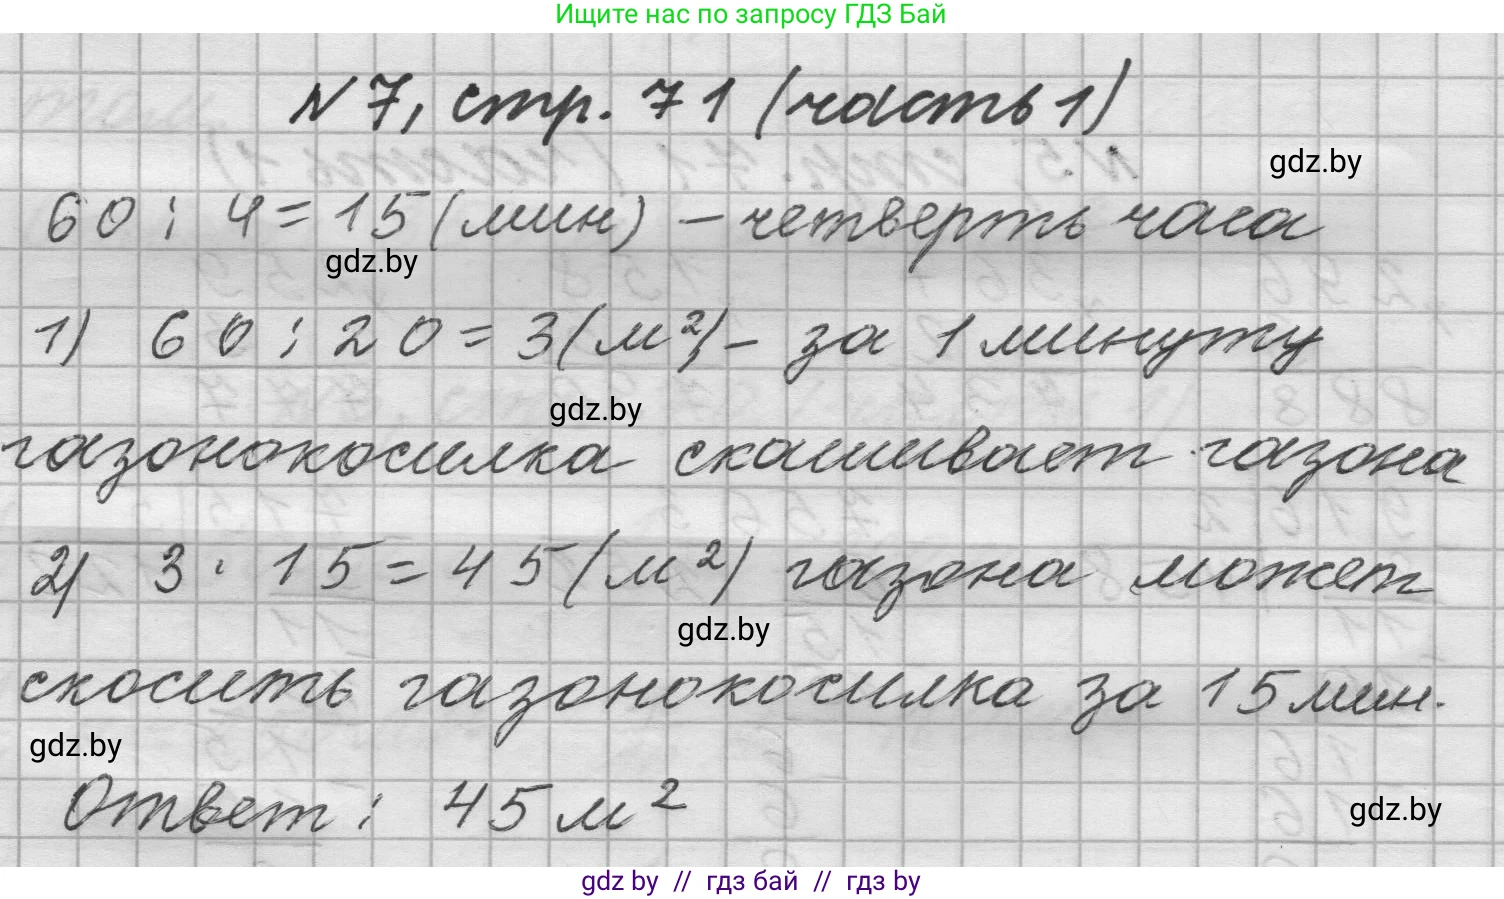 Ищите нас по запросу ГДЗ Бай
N 7, стр. 71 (часть 1)
gdz.by
60 : 4 = 15 (мин) – четверть часа
gdz.by
1) 60 : 20 = 3 (м²) – за 1 минуту
gdz.by
газонокосилка скашивает газона
2) 3 · 15 = 45 (м²) газона может
gdz.by
скосить газонокосилка за 15 мин.
gdz.by
Ответ: 45 м²
gdz.by
gdz by // гдз бай // гдз by